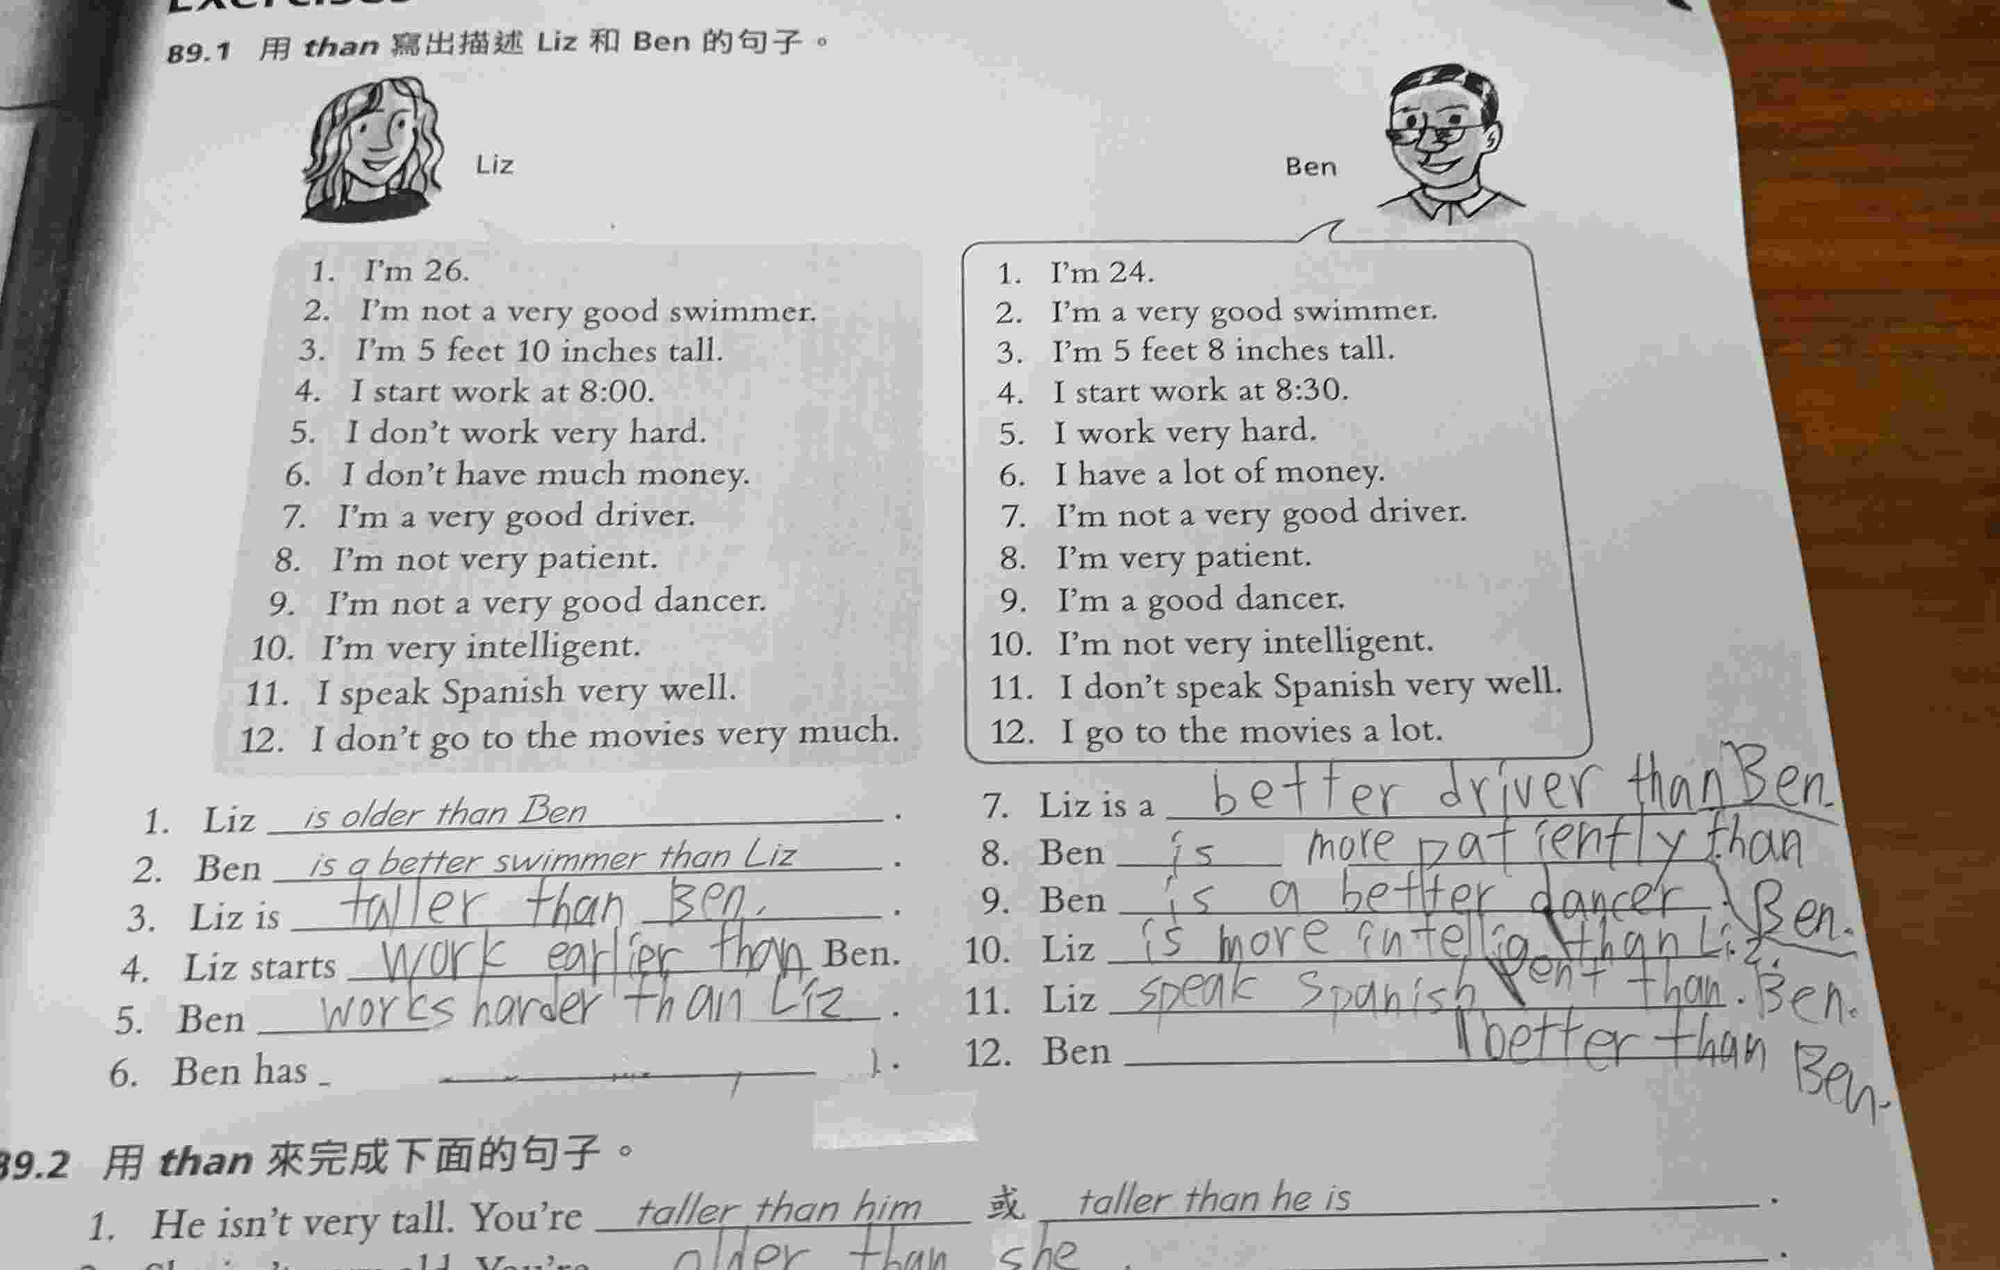 89.1 用 than 寫出描述 Liz 和 Ben 的句子。
Liz
1. I'm 26.
2. I'm not a very good swimmer.
3. I'm 5 feet 10 inches tall.
4. I start work at 8:00.
5. I don't work very hard.
6. I don't have much money.
7. I'm a very good driver.
8. I'm not very patient.
9. I'm not a very good dancer.
10. I'm very intelligent.
11. I speak Spanish very well.
12. I don't go to the movies very much.
Ben
1. I'm 24.
2. I'm a very good swimmer.
3. I'm 5 feet 8 inches tall.
4. I start work at 8:30.
5. I work very hard.
6. I have a lot of money.
7. I'm not a very good driver.
8. I'm very patient.
9. I'm a good dancer.
10. I'm not very intelligent.
11. I don't speak Spanish very well.
12. I go to the movies a lot.
1. Liz is older than Ben.
2. Ben is a better swimmer than Liz.
3. Liz is taller than Ben. .
4. Liz starts work earlier than Ben.
5. Ben works harder than Liz.
6. Ben has .
7. Liz is a better driver than Ben.
8. Ben is more patiently than
Ben.
9. Ben is a better dancer
than Liz.
10. Liz is more intelligent than. Ben.
11. Liz speak Spanish
better than Ben.
12. Ben
89.2 用 than 來完成下面的句子。
1. He isn't very tall. You're taller than him 或 taller than he is.
older than she .